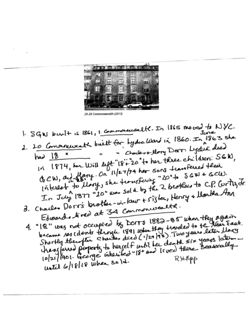 20-28 Commonwealth (2013)
1. SGW built is 1861, 1 Commonwealth. In 1865 moved to N.Y.C.
2. 20 Commonwealth built for Lydia Ward in 1860. In June 1863 she
had 18 " " " Charles + Mary Dorr. Lydia died
in 1874, her will left "18 + 20" to her three children SGW,
GCW, and Mary. On 11/27/74 her sons transferred their
interest to Mary, she transferring "20" to SGW + GCW.
In July 1877 "20" was sold by the 2 brothers to C.P. Curtis, Jr.
3. Charles Dorr's brother-in-law + sister, Henry + Martha Ann
Edwards lived at 34 Commonwealth.
4. "18" was not occupied by Dorrs 1882-85 when they again
became residents through 1891 when they decided to
Shortly thereafter Charles died (1/28/93). Two years later Mary
transferred property to himself until her death six years later –
10/21/1901. George inherited "18" and lived there seasonally
until 6/18/18 when sold. R.H.Epp